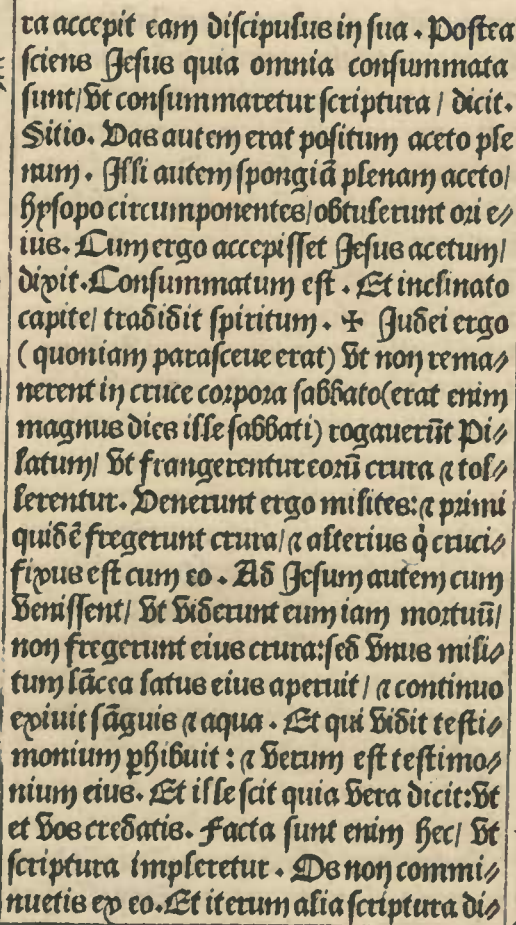 ra accepit eam discipulus in sua. Postea
sciens Jesus quia omnia consummata
sunt/ vt consummaretur scriptura / dicit.
Sitio. Vas autem erat positum aceto ple
num. Illi autem spongiā plenam aceto/
hysopo circumponentes/ obtulerunt ori e⸗
ius. Cum ergo accepisset Jesus acetum/
dixit. Consummatum est. Et inclinato
capite/ tradidit spiritum. ✠ Judei ergo
(quoniam parasceue erat) vt non rema⸗
nerent in cruce corpora sabbato(erat enim
magnus dies ille sabbati) rogauerūt Pi⸗
latum/ vt frangerentur eorū crura ⁊ tol⸗
lerentur. Venerunt ergo milites: ⁊ primi
quidē fregerunt crura/ ⁊ alterius q̇ cruci⸗
fixus est cum eo. Ad Jesum autem cum
venissent/ vt viderunt eum iam mortuū/
non fregerunt eius crura: sed vnus mili⸗
tum lācea latus eius aperuit / ⁊ continuo
exiuit sāguis ⁊ aqua. Et qui vidit testi⸗
monium ꝑhibuit: ⁊ verum est testimo⸗
nium eius. Et ille scit quia vera dicit: vt
et vos credatis. Facta sunt enim hec/ vt
scriptura impleretur. Os non commi⸗
nuetis ex eo. Et iterum alia scriptura di⸗